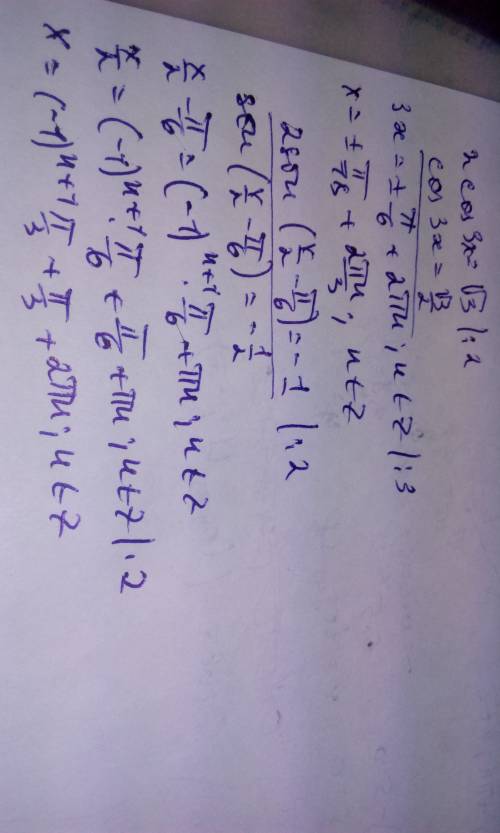 2 cos 3x = √3 |:2
cos 3x = √3/2
3x = ± π/6 + 2πn; n ∈ Z |:3
x = ± π/18 + 2πn/3; n ∈ Z
2 sin (x/2 - π/6) = -1 |:2
sin (x/2 - π/6) = -1/2
x/2 - π/6 = (-1)ⁿ⁺¹ · π/6 + πn; n ∈ Z
x/2 = (-1)ⁿ⁺¹ · π/6 + π/6 + πn; n ∈ Z |·2
x = (-1)ⁿ⁺¹ π/3 + π/3 + 2πn; n ∈ Z